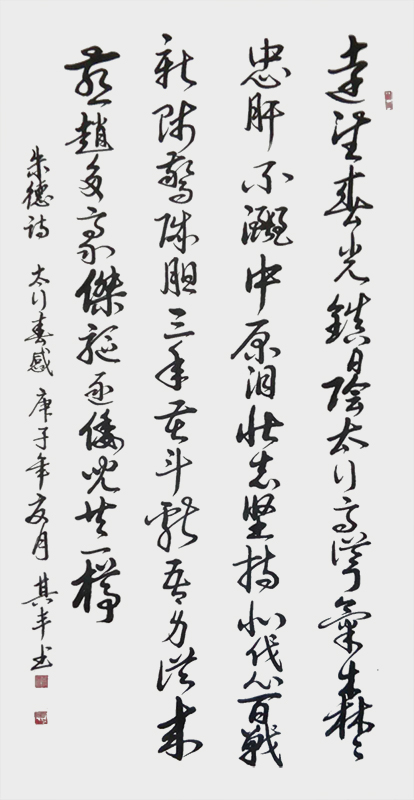 遠望春光鎮日陰太行高聳氣森森
忠肝不灑中原泪壯志堅持北伐心百戰
新師驚賊胆三年苦斗獻吾身從來
燕趙多豪傑驅逐倭兒共一樽
朱德詩 太行春感 庚子年夏月 其丰书